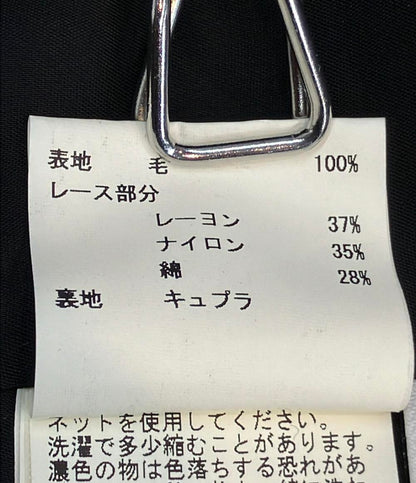 表地 毛 100%
レース部分
レーヨン 37%
ナイロン 35%
綿 28%
裏地 キュプラ
ネットを使用してください。
洗濯で多少縮むことがあります。
濃色の物は色落ちする恐れがあ